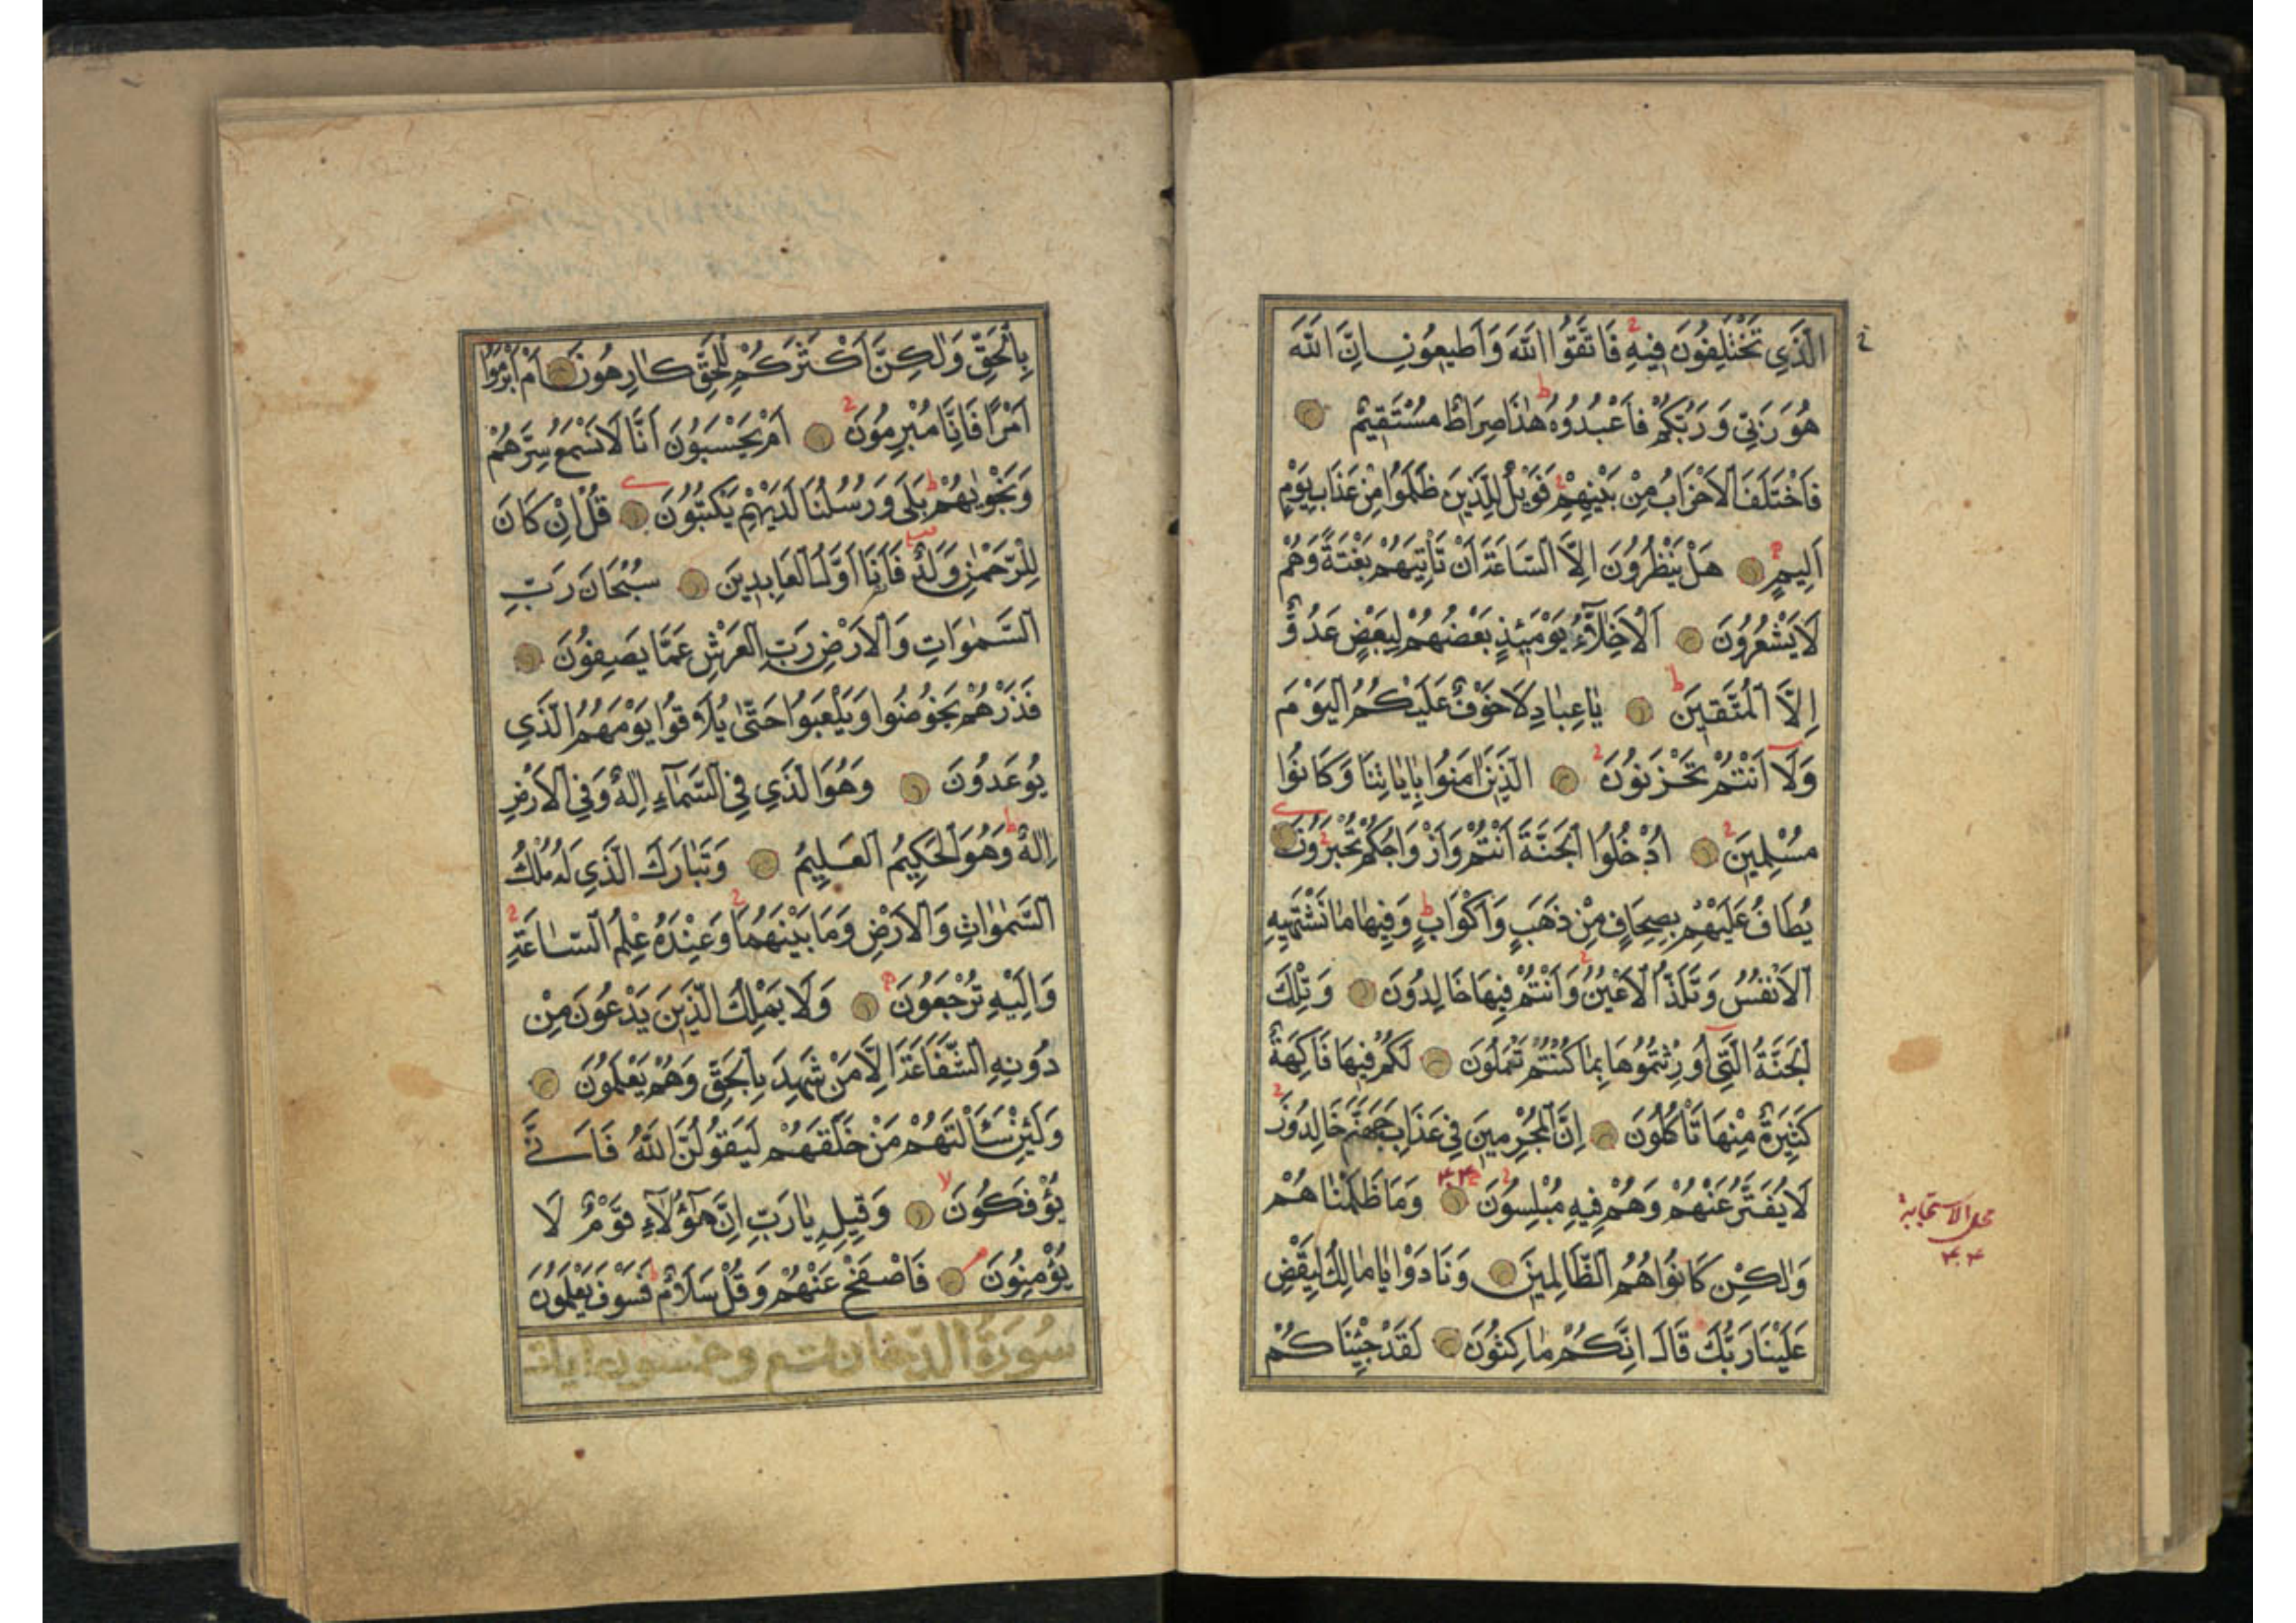 الَّذِي تَخْتَلِفُونَ فِيهِ فَاتَّقُوا اللَّهَ وَأَطِيعُونِ إِنَّ اللَّهَ
هُوَ رَبِّي وَرَبُّكُمْ فَاعْبُدُوهُ هٰذَا صِرَاطٌ مُسْتَقِيمٌ
فَاخْتَلَفَ الْأَحْزَابُ مِنْ بَيْنِهِمْ فَوَيْلٌ لِلَّذِينَ ظَلَمُوا مِنْ عَذَابِ يَوْمٍ
أَلِيمٍ هَلْ يَنْظُرُونَ إِلَّا السَّاعَةَ أَنْ تَأْتِيَهُمْ بَغْتَةً وَهُمْ
لَا يَشْعُرُونَ الْأَخِلَّاءُ يَوْمَئِذٍ بَعْضُهُمْ لِبَعْضٍ عَدُوٌّ
إِلَّا الْمُتَّقِينَ يَا عِبَادِ لَا خَوْفٌ عَلَيْكُمُ الْيَوْمَ
وَلَا أَنْتُمْ تَحْزَنُونَ الَّذِينَ اٰمَنُوا بِاٰيَاتِنَا وَكَانُوا
مُسْلِمِينَ أُدْخُلُوا الْجَنَّةَ أَنْتُمْ وَأَزْوَاجُكُمْ تُحْبَرُونَ
يُطَافُ عَلَيْهِمْ بِصِحَافٍ مِنْ ذَهَبٍ وَأَكْوَابٍ وَفِيهَا مَا تَشْتَهِيهِ
الْأَنْفُسُ وَتَلَذُّ الْأَعْيُنُ وَأَنْتُمْ فِيهَا خَالِدُونَ وَتِلْكَ
الْجَنَّةُ الَّتِي أُورِثْتُمُوهَا بِمَا كُنْتُمْ تَعْمَلُونَ لَكُمْ فِيهَا فَاكِهَةٌ
كَثِيرَةٌ مِنْهَا تَأْكُلُونَ إِنَّ الْمُجْرِمِينَ فِي عَذَابِ جَهَنَّمَ خَالِدُونَ
لَا يُفَتَّرُ عَنْهُمْ وَهُمْ فِيهِ مُبْلِسُونَ وَمَا ظَلَمْنَاهُمْ
وَلٰكِنْ كَانُوا هُمُ الظَّالِمِينَ وَنَادَوْا يَا مَالِكُ لِيَقْضِ
عَلَيْنَا رَبُّكَ قَالَ إِنَّكُمْ مَاكِثُونَ لَقَدْ جِئْنَاكُمْ
محل الاستجابة
بِالْحَقِّ وَلٰكِنَّ أَكْثَرَكُمْ لِلْحَقِّ كَارِهُونَ أَمْ أَبْرَمُوا
أَمْرًا فَإِنَّا مُبْرِمُونَ أَمْ يَحْسَبُونَ أَنَّا لَا نَسْمَعُ سِرَّهُمْ
وَنَجْوٰيهُمْ بَلَى وَرُسُلُنَا لَدَيْهِمْ يَكْتُبُونَ قُلْ إِنْ كَانَ
لِلرَّحْمٰنِ وَلَدٌ فَأَنَا أَوَّلُ الْعَابِدِينَ سُبْحَانَ رَبِّ
السَّمٰوَاتِ وَالْأَرْضِ رَبِّ الْعَرْشِ عَمَّا يَصِفُونَ
فَذَرْهُمْ يَخُوضُوا وَيَلْعَبُوا حَتَّى يُلَاقُوا يَوْمَهُمُ الَّذِي
يُوعَدُونَ وَهُوَ الَّذِي فِي السَّمَاءِ إِلٰهٌ وَفِي الْأَرْضِ
إِلٰهٌ وَهُوَ الْحَكِيمُ الْعَلِيمُ وَتَبَارَكَ الَّذِي لَهُ مُلْكُ
السَّمٰوَاتِ وَالْأَرْضِ وَمَا بَيْنَهُمَا وَعِنْدَهُ عِلْمُ السَّاعَةِ
وَإِلَيْهِ تُرْجَعُونَ وَلَا يَمْلِكُ الَّذِينَ يَدْعُونَ مِنْ
دُونِهِ الشَّفَاعَةَ إِلَّا مَنْ شَهِدَ بِالْحَقِّ وَهُمْ يَعْلَمُونَ
وَلَئِنْ سَأَلْتَهُمْ مَنْ خَلَقَهُمْ لَيَقُولُنَّ اللَّهُ فَأَنَّى
يُؤْفَكُونَ وَقِيلِهِ يَا رَبِّ إِنَّ هٰؤُلَاءِ قَوْمٌ لَا
يُؤْمِنُونَ فَاصْفَحْ عَنْهُمْ وَقُلْ سَلَامٌ فَسَوْفَ يَعْلَمُونَ
سُورَةُ الدخان تسع وخمسون ايات